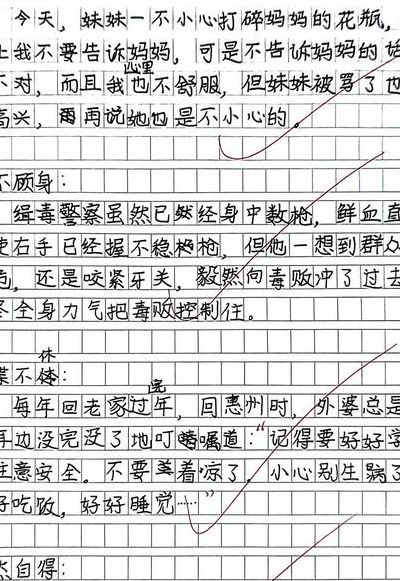 今天，妹妹一不小心打碎妈妈的花瓶，
上我不要告诉妈妈，可是不告诉妈妈的话
不对，而且我心里也不舒服，但妹妹被骂了也
高兴，再说她也是不小心的。
不顾身：
缉毒警察虽然已然经身中数枪，鲜血直
使右手已经握不稳枪，但他一想到群众
危，还是咬紧牙关，毅然向毒贩冲了过去
尽全身力气把毒贩控制住。
喋不休：
每年回老家过完年，回惠州时，外婆总是
耳边没完没了地叮嘱道："记得要好好学
注意安全。不要着凉了。小心别生病了
好吃饭，好好睡觉……"
然自得：